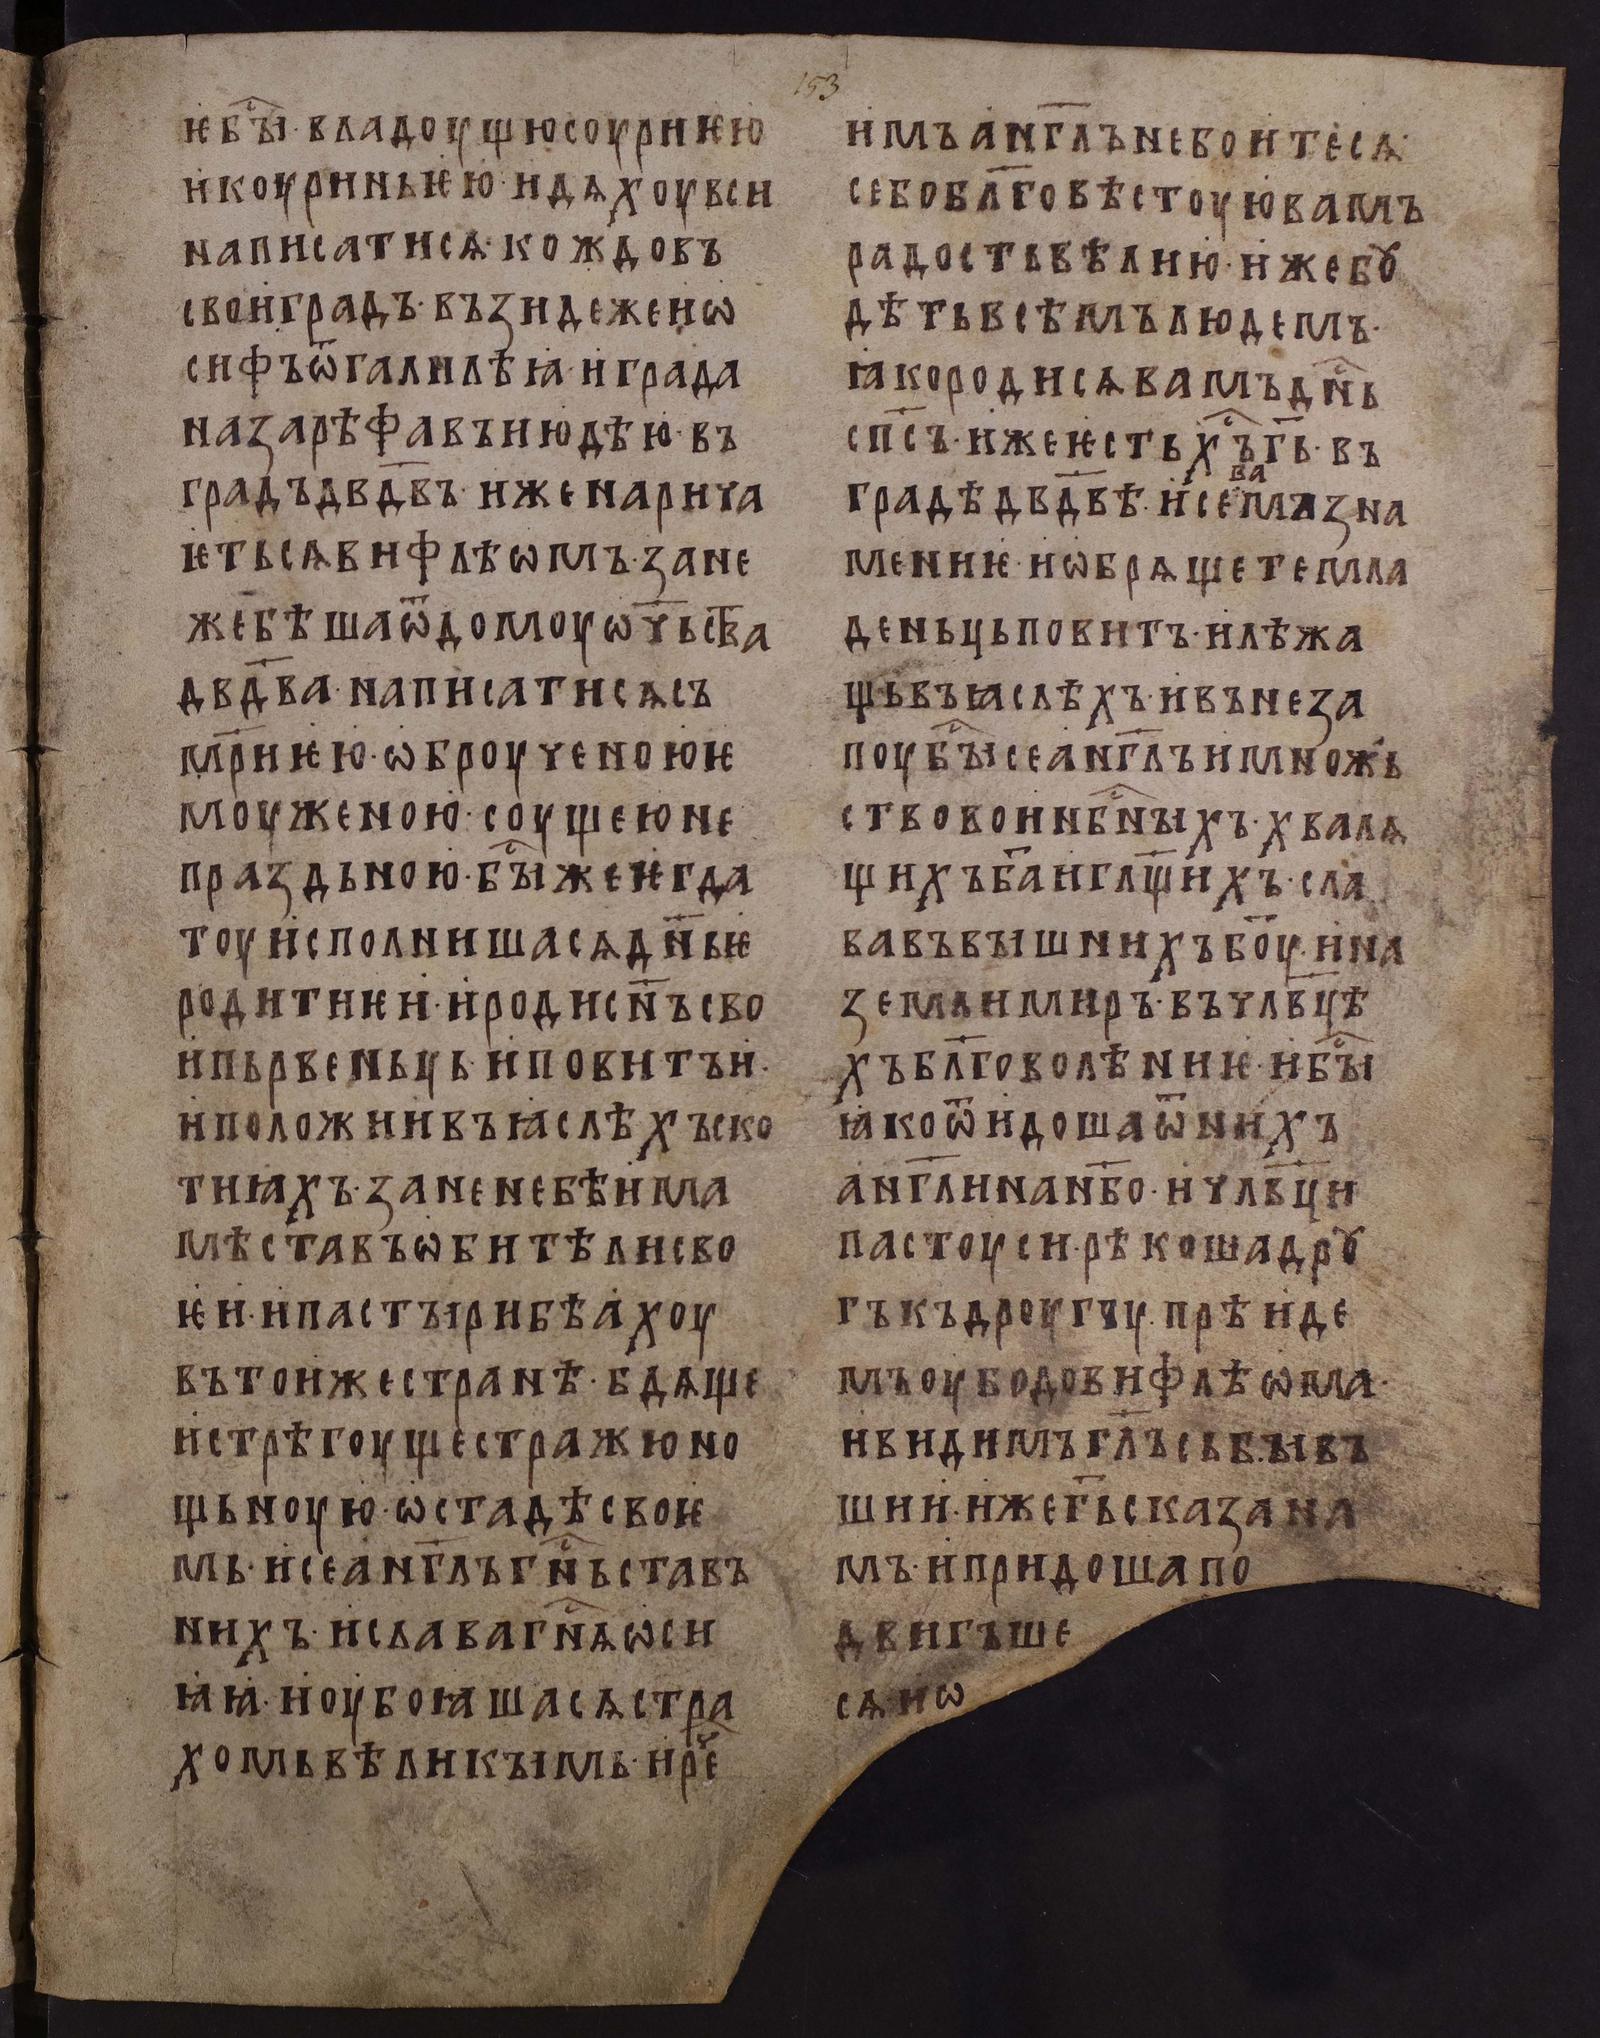 153
ѥбꙑ҇· владоущюсоурниѥю
икоуриньѥю· идѧхоувси
написатисѧ· кождовъ
свои градъ· възидежеиѡ
сифъѿгалилѣꙗ· играда
назарѣфавъиюдѣю· въ
градъдв҃двъ· иженарича
ѥтьсѧвифлѣѡмъ· зане
жебѣшаѿдомоуѡч҃ьст҃ва
дв҃два· написатисѧсъ
мр҃иѥю· ѡброученоюѥ
моуженою· соущеюне
праздьною· бꙑ҇жеѥгда
тоуисполнишасѧдн҃ьѥ
родитиѥи· иродисн҃ъсво
ипьрвеньць· иповитъи·
иположиивъꙗслѣхъско
тиꙗхъ· заненебѣима
мѣставъѡбитѣлисво
ѥи· ипастꙑрибѣахоу
втоижестранѣ· бдѧще
истрѣгоущестражюно
щьноую· ѡстадѣсвоѥ
мь· исеанг҃лъгн҇ьставъ
нихъ· иславагн҇ѧѡси
ꙗꙗ· иоубоꙗшасѧстра
хомьвѣликꙑмь· ирⷱ҇е
имъанг҃лънебоитесѧ·
себобл҃говѣстоуювамъ
радостьвѣлию· ижебꙋ
дѣтьвсѣмълюдемъ·
ꙗкородисѧвамъдн҇ь
сп҃съ· ижеѥстьх҇ъг҃ь· въ
градѣдв҃двѣ· исевамъзна
мениѥ· иѡбрѧщетемла
деньцьповитъ· илѣжа
щьвъꙗслѣхъ· ивънеза
поубꙑ҇сеанг҃лъимножь
ствовоинбн҇ꙑхъ· хвалѧ
щихъб҃аигл҃щихъ· сла
вавъвꙑшнихъб҃оу· ина
землиимиръ· въчлв҃цѣ
хъбл҃говолѣниѥ· ибꙑ҇
ꙗкоѿидошаѿнихъ
анг҃линанб҃о· ичлв҃ци
пастоуси· рѣкошадрꙋ
гъкъдроугоу· прѣиде
мъоубодовифлѣѡма·
ивидимъгл҃ъсьбꙑвъ
шии· ижег҃ьсказана
мъ· ипридошапо
двигъше
сѧиѡ